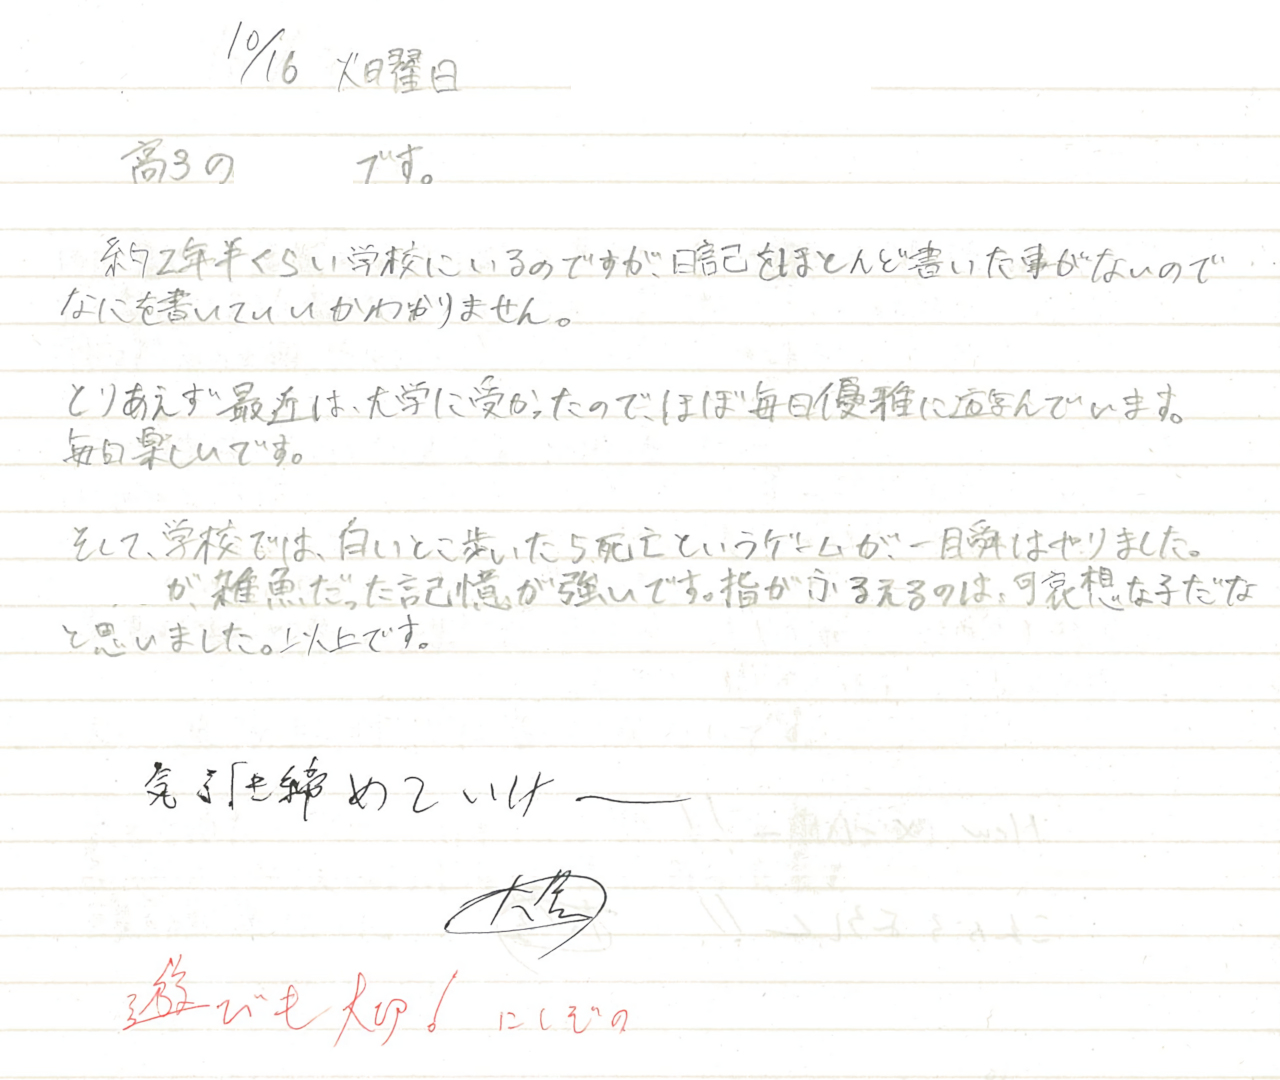 10/16 火曜日
高3の です。
約2年半くらい学校にいるのですが、日記をほとんど書いた事がないので
なにを書いていいかわかりません。
とりあえず最近は、大学に受かったので、ほぼ毎日優雅に遊んでいます。
毎日楽しいです。
そして、学校では、白いとこ歩いたら死亡というゲームが、一瞬はやりました。
が、雑魚だった記憶が強いです。指がふるえるのは、可哀想な子だな
と思いました。以上です。
気引き締めていけー
遊びも大切! にしぞの